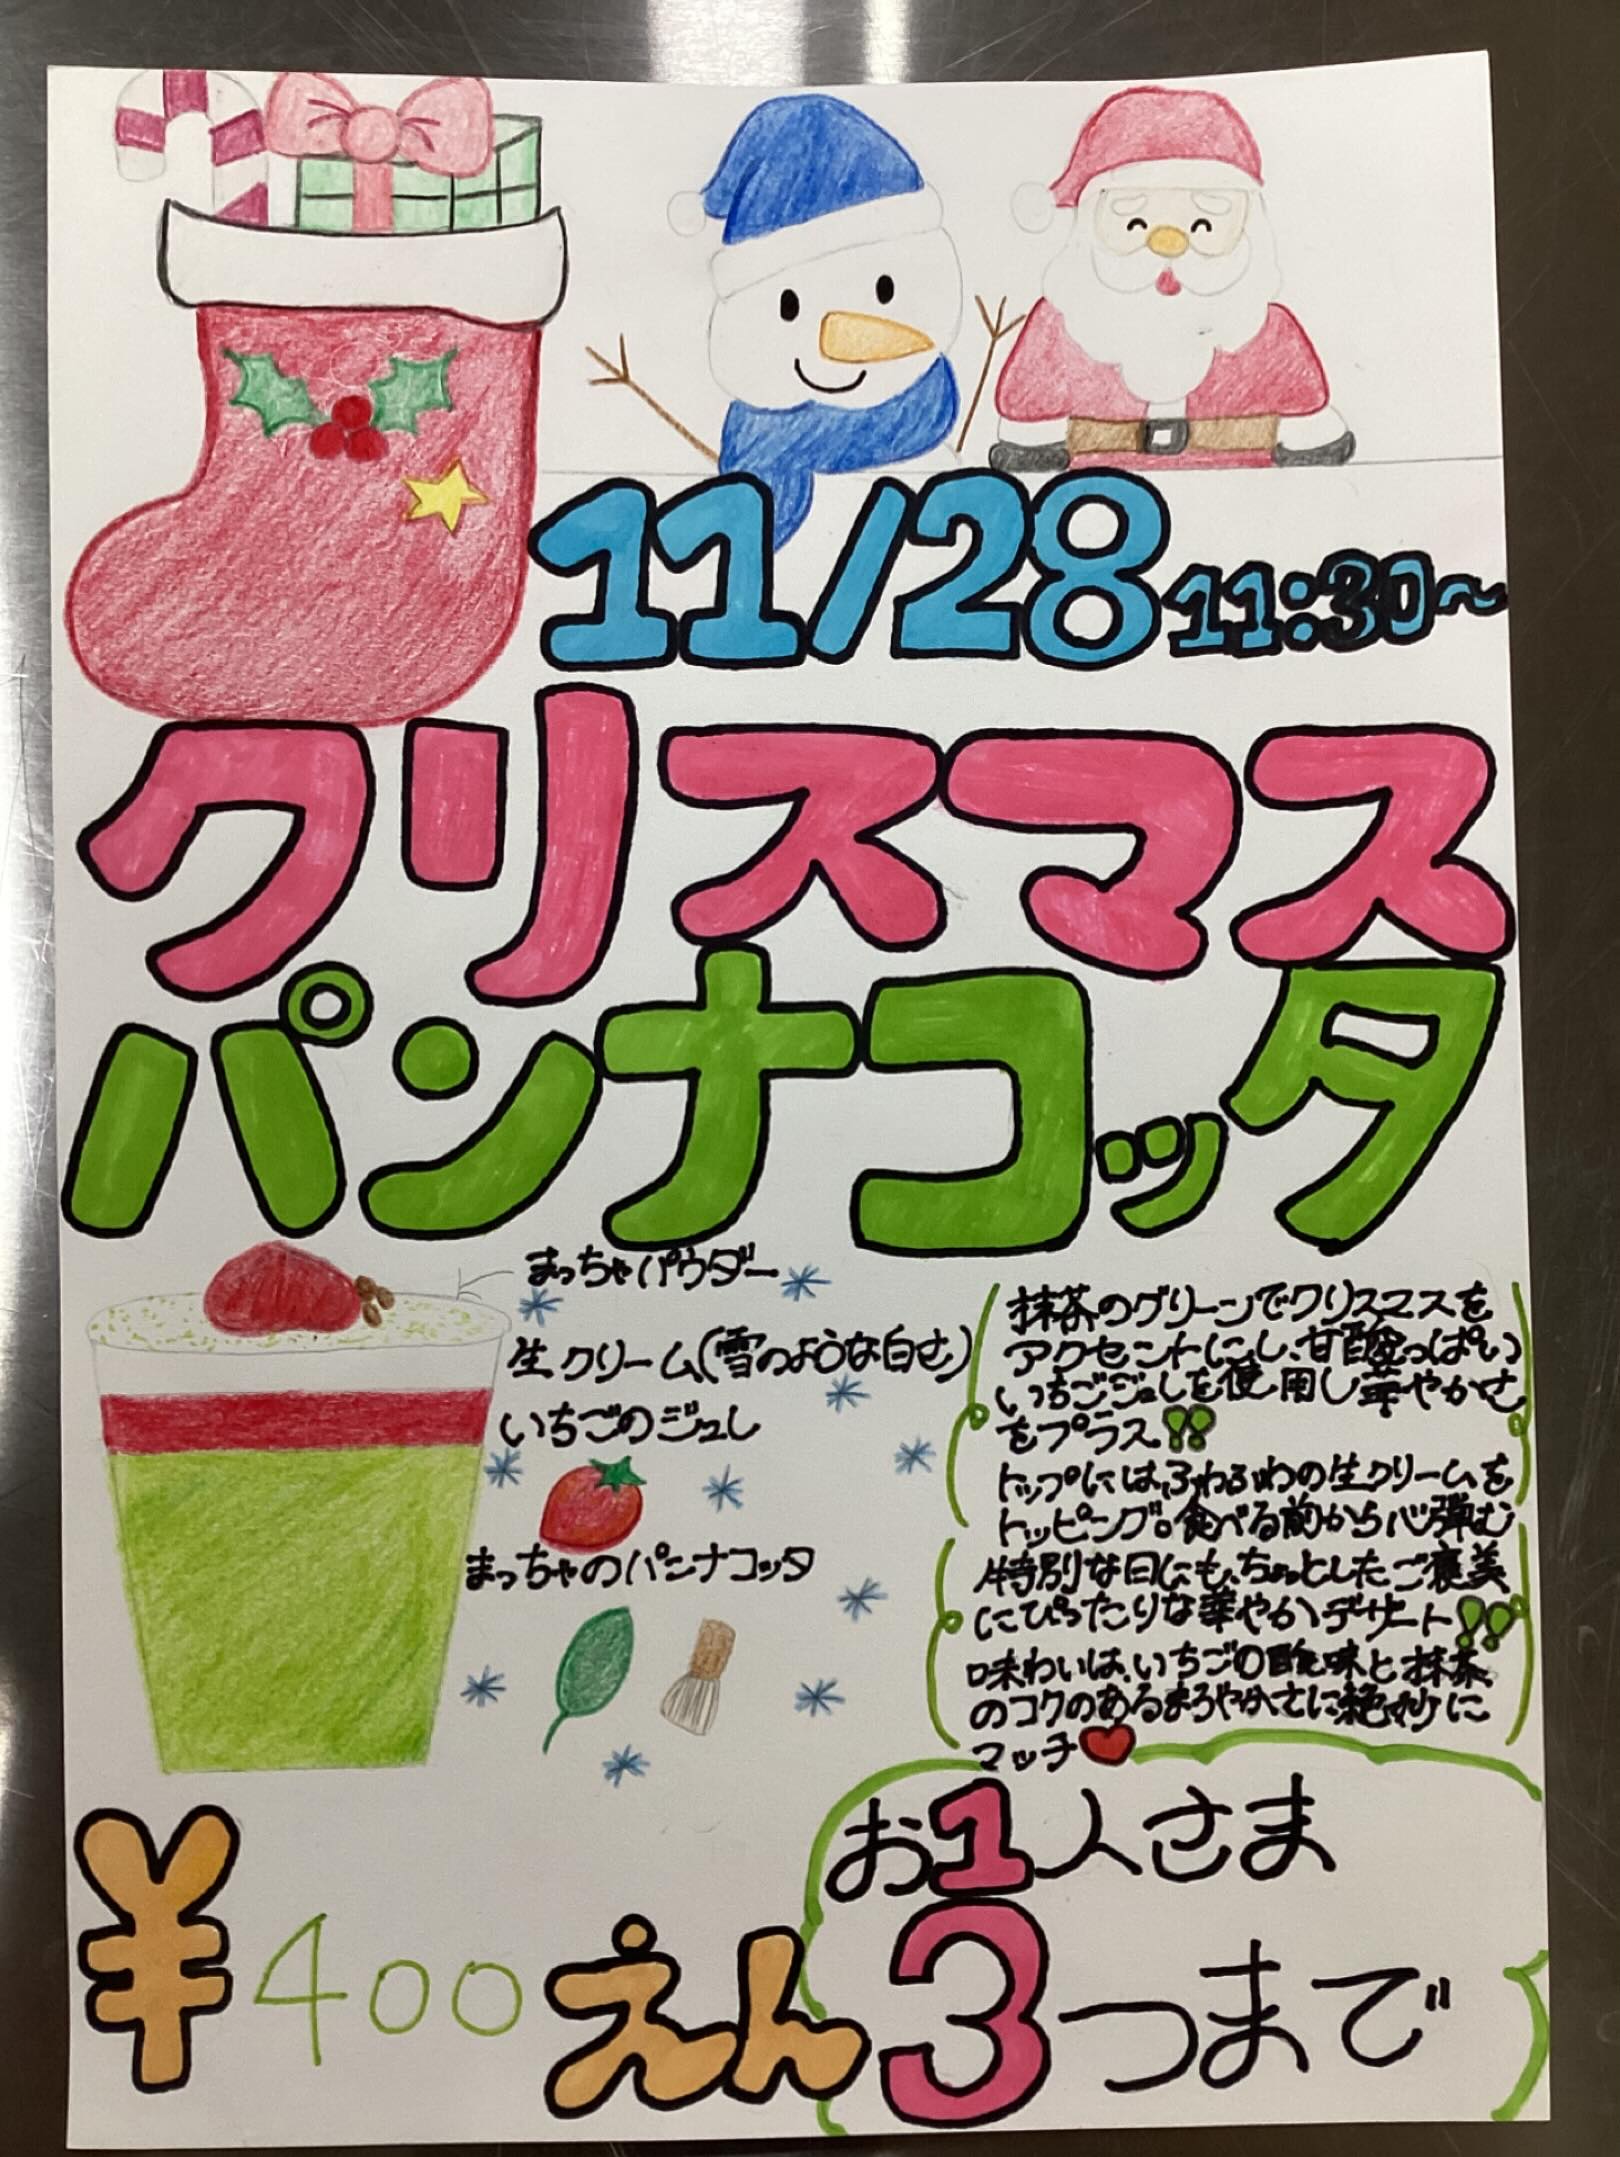 11/28 11:30~
クリスマス
パンナコッタ
まっちゃパウダー
生クリーム(雪のような白さ)
いちごのジュレ
まっちゃのパンナコッタ
抹茶のグリーンでクリスマスを
アクセントにし、甘酸っぱい
いちごジュレを使用し華やかさ
をプラス!!
トップにはふわふわの生クリームを
トッピング。食べる前から心弾む
特別な日にも、ちょっとしたご褒美
にぴったりな華やかデザート!!
味わいは、いちごの酸味と抹茶
のコクのあるまろやかさに絶妙に
マッチ
お1人さま
3つまで
¥400えん